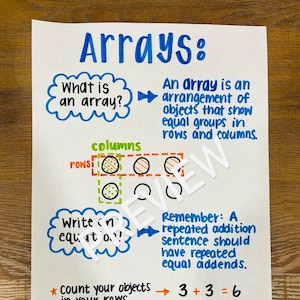 Arrays:
What is
an array?
An array is an
arrangement of
objects that show
equal groups in
rows and columns.
columns
rows
Write an
equation?
Remember: A
repeated addition
sentence should
have repeated
equal addends.
* Count your objects
in your rows
3 + 3 = 6
PREVIEW